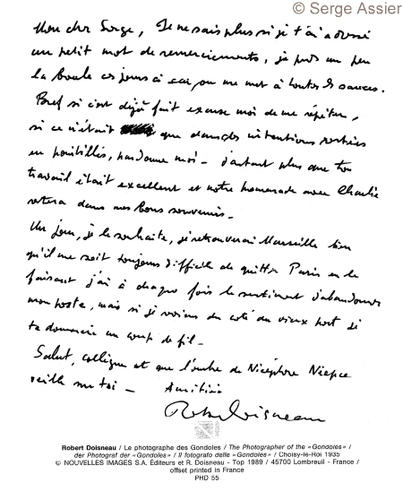 © Serge Assier
Mon cher Serge, Je ne sais plus si je t'ai adressé
un petit mot de remerciements, je perds un peu
la boule ces jours-ci car on me met à toutes les sauces.
Bref si c'est déjà fait excuse moi de me répéter,
si ce n'était que dans des intentions restées
en pointillés, pardonne moi - d'autant plus que ton
travail était excellent et notre promenade avec Charlie
restera dans nos bons souvenirs -
Un jour, je le souhaite, je retrouverai Marseille bien
qu'il me soit toujours difficile de quitter Paris en le
faisant j'ai à chaque fois le sentiment d'abandonner
mon poste, mais si je venais du coté du vieux port je
te donnerais un coup de fil -
Salut, collègue et que l'ombre de Nicéphore Niepce
veille sur toi - Amitiés
Robert Doisneau
Robert Doisneau / Le photographe des Gondoles / The Photographer of the «Gondoles» /
der Photograf der «Gondoles» / Il fotografo delle «Gondoles» / Choisy-le-Roi 1935
© NOUVELLES IMAGES S.A. Éditeurs et R. Doisneau - Top 1989 / 45700 Lombreuil - France /
offset printed in France
PHD 55